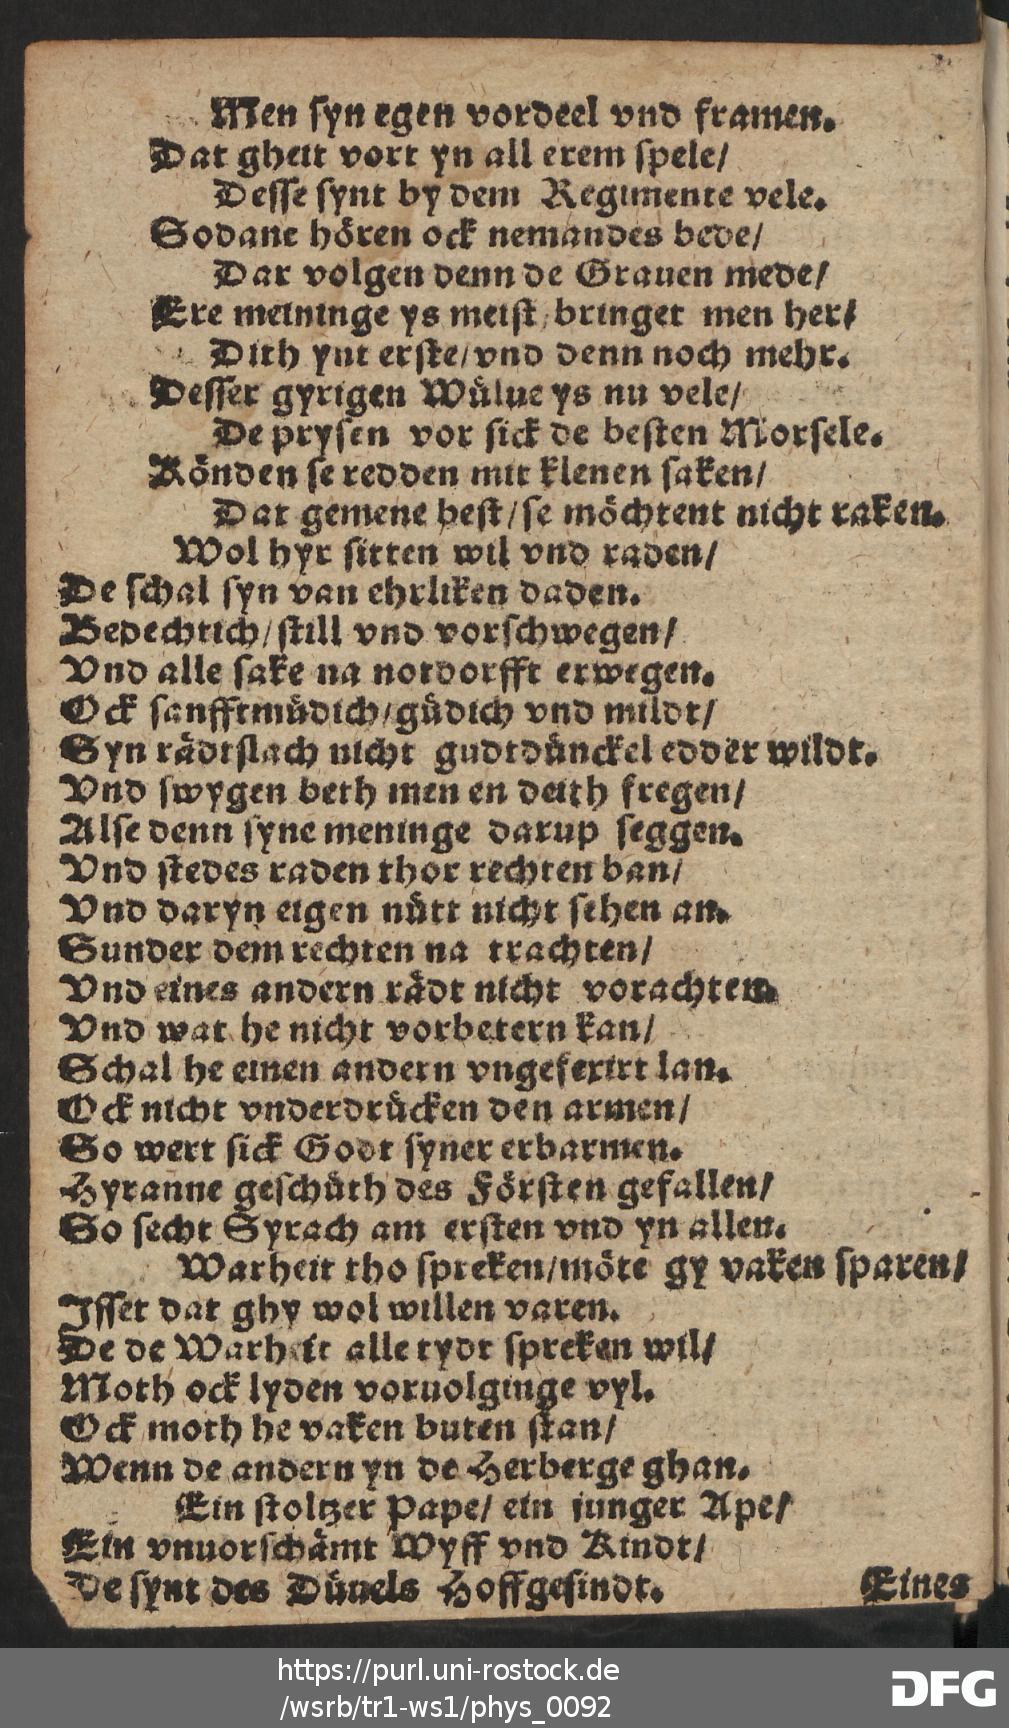 Men syn egen vordeel vnd framen.
Dat gheit vort yn all erem spele/
Desse synt by dem Regimente vele.
Sodane hören ock nemandes bede/
Dar volgen denn de Grauen mede/
Ere meininge ys meist bringet men her/
Dith ynt erste/ vnd denn noch mehr.
Desser gyrigen Wülue ys nu vele/
De prysen vor sick de besten Morsele.
Könden se redden mit klenen saken/
Dat gemene best/ se möchtent nicht raken.
Wol hyr sitten wil vnd raden/
De schal syn van ehrliken daden.
Bedechtich/ still vnd vorschwegen/
Vnd alle sake na notdorfft erwegen.
Ock sanfftmüdich/ güdich vnd mildt/
Syn rädtslach nicht gudtdünckel edder wildt.
Vnd swygen beth men en deith fregen/
Alse denn syne meninge darup seggen.
Vnd stedes raden thor rechten ban/
Vnd daryn eigen nütt nicht sehen an.
Sunder dem rechten na trachten/
Vnd eines andern rädt nicht vorachten.
Vnd wat he nicht vorbetern kan/
Schal he einen andern vngefexirt lan.
Ock nicht vnderdrücken den armen/
So wert sick Godt syner erbarmen.
Hyranne geschüth des Försten gefallen/
So secht Syrach am ersten vnd yn allen.
Warheit tho spreken/ möte gy vaken sparen/
Isset dat ghy wol willen varen.
De de Warheit alle tydt spreken wil/
Moth ock lyden voruolginge vyl.
Ock moth he vaken buten stan/
Wenn de andern yn de Herberge ghan.
Ein stoltzer Pape/ ein junger Ape/
Ein vnuorschämt Wyff vnd Kindt/
De synt des Düuels Hoffgesindt.
Eines
https://purl.uni-rostock.de
/wsrb/tr1-ws1/phys_0092
DFG